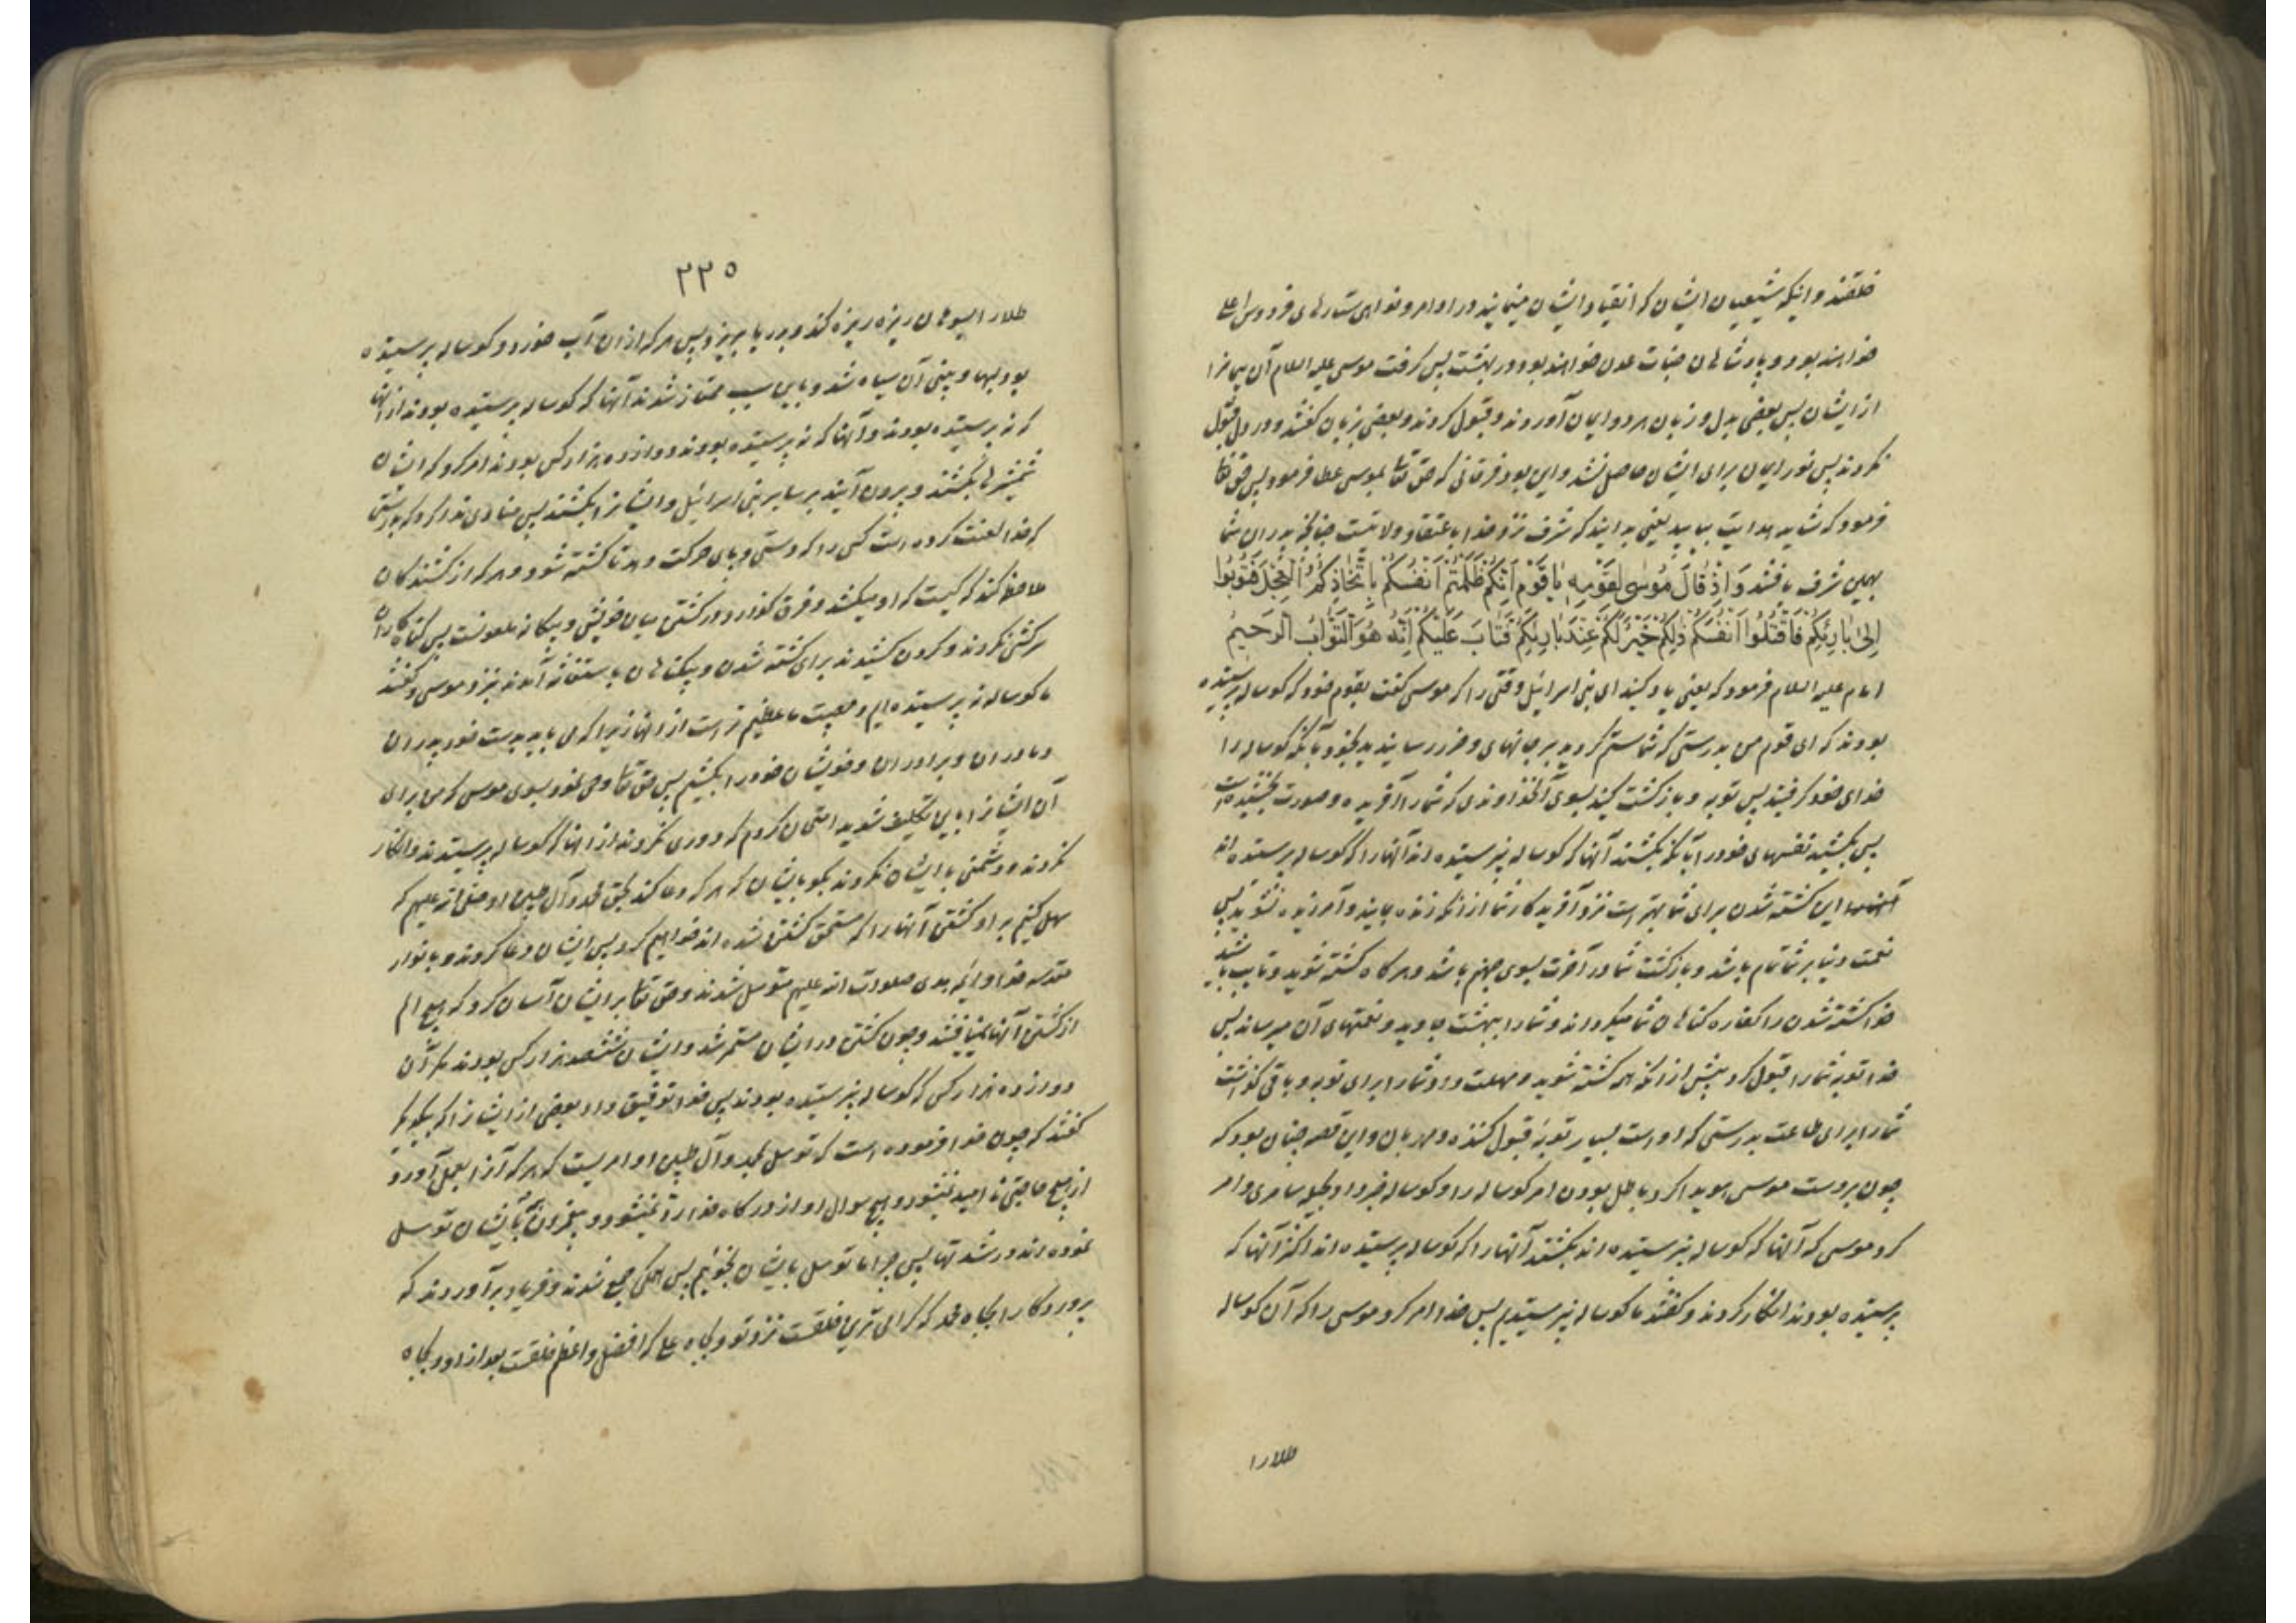 خلقند و اینکه شیعیان ایشان که انقیاد ایشان مینمایند در اوامر و نواهی ستارهای فردوس اعلی
خواهند بود و پادشاهان جنات عدن خواهند بود در بهشت پس گرفت موسی علیه السلام آن پیمانرا
از ایشان پس بعضی بدل و زبان هر دو ایمان آوردند و قبول کردند و بعضی بزبان گفتند و در دل قبول
نکردند پس نور ایمان برای ایشان حاصل نشد و این بود فرقانی که حق تعا بموسی عطا فرمود پس حق تعا
فرمود که شاید هدایت بیابید یعنی بدانید که شرف نزد خدا باعتقاد ولایتست چنانچه پدران شما
بهمین شرف یافتند وَاِذْ قَالَ مُوسٰی لِقَوْمِهِ یَا قَوْمِ اِنَّکُمْ ظَلَمْتُمْ اَنْفُسَکُمْ بِاتِّخَاذِکُمُ الْعِجْلَ فَتُوبُوا
اِلیٰ بَارِئِکُمْ فَاقْتُلُوا اَنْفُسَکُمْ ذٰلِکُمْ خَیْرٌ لَکُمْ عِنْدَ بَارِئِکُمْ فَتَابَ عَلَیْکُمْ اِنَّهُ هُوَ التَّوَّابُ الرَّحِیمُ
امام علیه السلام فرمود که یعنی یاد کنید ای بنی اسرائیل وقتی را که موسی گفت بقوم خود که گوساله پرستیده
بودند که ای قوم من بدرستی که شما ستم کردید بر جانهای و ضرر رسانیدید بخود بآنکه گوساله را
خدای خود گرفتید پس توبه و بازگشت کنید بسوی آنخداوندی که شما را آفریده و صورت بخشیده است
پس بکشید نفسهای خود را بآنکه بکشند آنها که گوساله نپرستیده اند آنها را که گوساله پرستیده اند
این کشته شدن برای شما بهتر است نزد آفریدکار شما از آنکه زنده بمانید و آمرزیده نشوید پس
نعمت دنیا بر شما تمام باشد و بازگشت شما در آخرت بسوی جهنم باشد و هرگاه کشته شوید و تایب باشید
خدا کشته شدن را کفاره گناهان شما میگرداند و شما را ببهشت جاوید و نعمتهای آن میرساند پس
خدا توبه شما را قبول کرد پیش از آنکه همه کشته شوید و مهلت داد شما را برای توبه و باقی گذاشت
شما را برای طاعت بدرستی که او است بسیار توبه قبول کننده و مهربان و این قصه چنان بود که
چون بر دست موسی هویدا کرد باطل بودن امر گوساله را و گوساله خبر داد بحیله سامری و امر
کرد موسی که آنها که گوساله نپرستیده اند بکشند آنها را که گوساله پرستیده اند اکثر آنها که
پرستیده بودند انکار کردند و گفتند ما گوساله نپرستیدیم پس خدا امر کرد موسی را که آن گوساله
طلا را
۲۲۵
طلا را بسوهان ریزه ریزه کند و بدریا بریزد پس هر که از آن آب خورد و گوساله پرستیده
بود لبها و بینی آن سیاه شد و باین سبب ممتاز شدند آنها که گوساله پرستیده بودند از آنها
که نه پرستیده بودند و آنها که نه پرستیده بودند دوازده هزار کس بودند امر کرد که ایشان
شمشیرها بکشند و بیرون آیند بر سایر بنی اسرائیل و ایشانرا بکشند پس منادی ندا کرد که بدرستی
که خدا لعنت کرده است کسی را که دستی و پای حرکت دهد تا کشته شود و هر که از کشندگان
ملاحظه کند که کیست که او میکشد و فرق گذارد در کشتن میان خویش و بیگانه ملعونست پس گناه کاران
سرکشی نکردند و گردن کشیدند برای کشته شدن و بیگناهان باستغاثه آمدند نزد موسی و گفتند
ما گوساله نه پرستیده ایم و مصیبت ما عظیم تر است از آنها زیرا که می باید بدست خود پدران
و مادران و برادران و خویشان خود را بکشیم پس حق تعا وحی نمود بسوی موسی که من برای
آن ایشانرا باین تکلیف شدید امتحان کردم که دوری نکردند از آنها که گوساله پرستیدند و انکار
نکردند و دشمنی با ایشان نکردند بگو بایشان که هر که دعا کند بحق محمد و آل طیبین او صلوات الله علیهم که
سهل کنیم بر او کشتن آنها را که مستحق کشتن شده اند خواهیم کرد پس ایشان دعا کردند و بانوار
مقدسه خدا و ائمه هدی صلوات الله علیهم متوسل شدند و حق تعا بر ایشان آسان کرد که هیچ الم
از کشتن آنها نمییافتند و چون کشتن در ایشان مستمر شد و ایشان ششصد هزار کس بودند مگر آن
دوازده هزار کس که گوساله نپرستیده بودند پس خدا توفیق داد بعضی از ایشانرا که بیکدیگر
گفتند که چون خدا فرموده است که توسل بمحمد و آل طیبین او امریست که هر که آنرا بعمل آورد
از هیچ حاجتی نا امید نمیشود و هیچ سوال او از درگاه خدا رد نمیشود و پیغمبران بایشان توسل
نموده اند در شدتها پس چرا ما توسل بایشان نجوئیم پس همگی جمع شدند و فریاد برآوردند که
پروردگارا بجاه محمد که گرامی ترین خلقست نزد تو و بجاه علی که افضل و اعظم خلقست بعد از او و بجاه